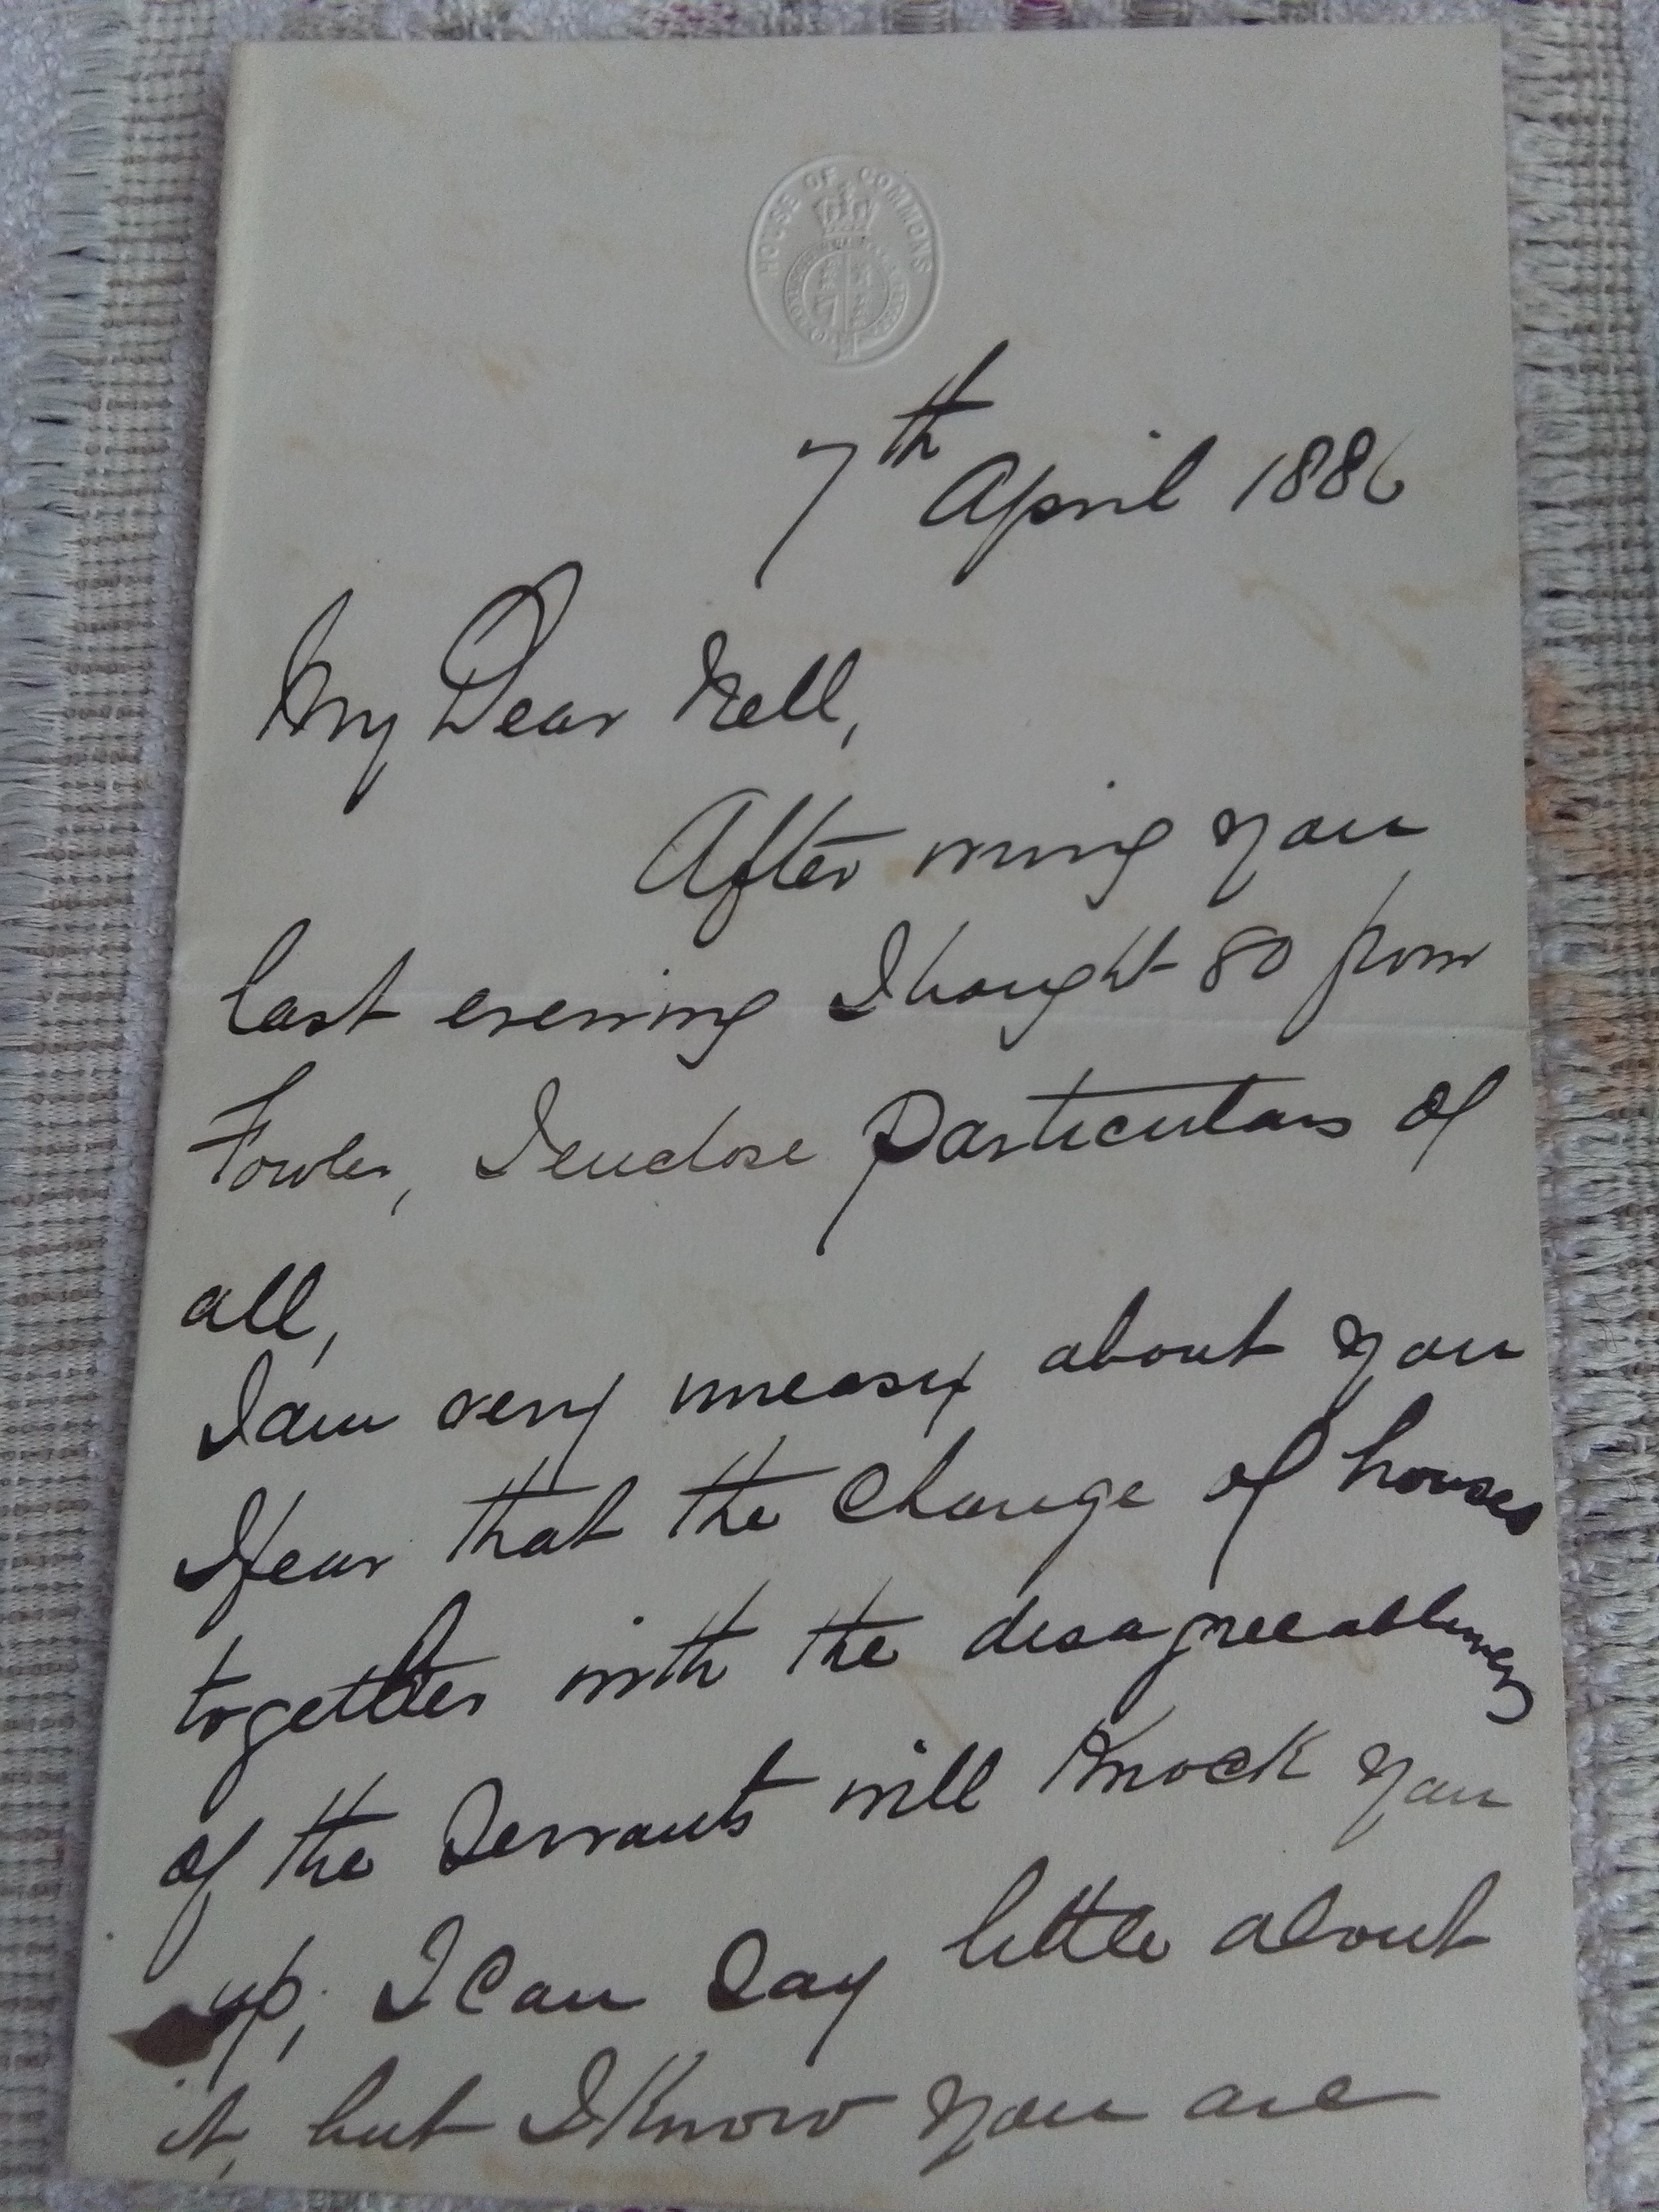 HOUSE OF COMMONS
7th April 1886
My Dear Nell,
After wiring you
last evening I bought 80 from
Fowler, I enclose Particulars of
all,
I am very uneasy about you
I fear that the Change of houses
together with the disagreeableness
of the Servants will Knock you
up; I Can Say little about
it, but I Know you are